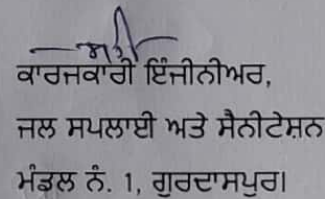 ਕਾਰਜਕਾਰੀ ਇੰਜੀਨੀਅਰ,
ਜਲ ਸਪਲਾਈ ਅਤੇ ਸੈਨੀਟੇਸ਼ਨ
ਮੰਡਲ ਨੰ. 1, ਗੁਰਦਾਸਪੁਰ।